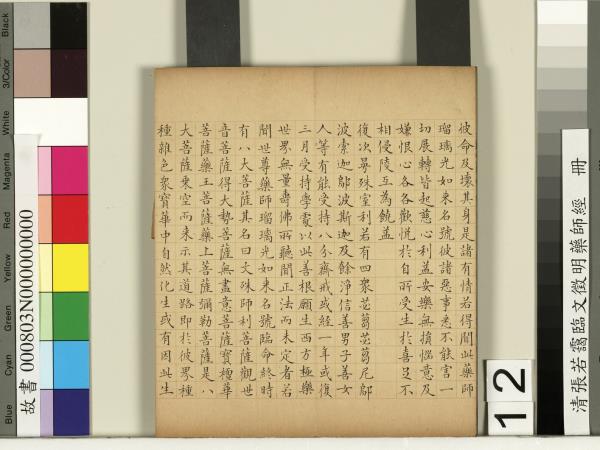 彼命及壞其身是諸有情若得聞此藥師
瑠璃光如來名號彼諸惡事悉不能害一
切展轉皆起慈心利益安樂無損惱意及
嫌恨心各各歡悅於自所受生於喜足不
相侵陵互為饒益
復次曼殊室利若有四眾苾芻苾芻尼鄔
波索迦鄔波斯迦及餘淨信善男子善女
人等有能受持八分齋戒或經一年或復
三月受持學處以此善根願生西方極樂
世界無量壽佛所聽聞正法而未定者若
聞世尊藥師瑠璃光如來名號臨命終時
有八大菩薩其名曰文殊師利菩薩觀世
音菩薩得大勢菩薩無盡意菩薩寶檀華
菩薩藥王菩薩藥上菩薩彌勒菩薩是八
大菩薩乘空而來示其道路即於彼界種
種雜色眾寶華中自然化生或有因此生
清張若靄臨文徵明藥師經 冊
12
故書 000803N000000000
Blue Cyan Green Yellow Red Magenta White 3/Color Black